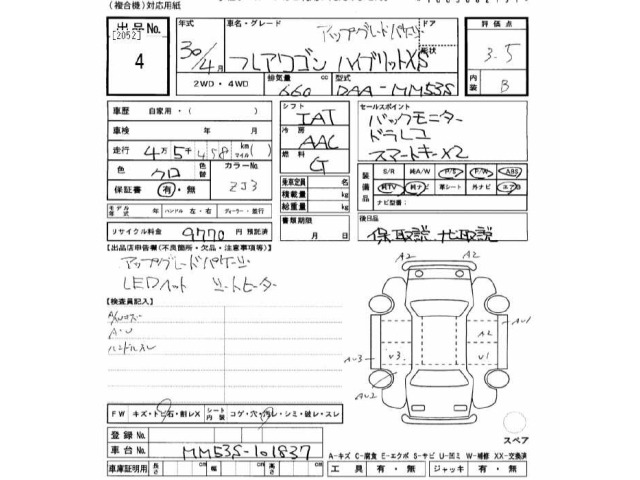 (複合機)対応用紙
出品No.
[2052]
4
年式
30/4月
車名・グレード
アップグレードパケージ
フレアワゴン ハイブリットXS
ドア
形状
2WD・4WD
排気量
660 cc
型式
DAA-MM53S
評価点
3.5
内装
B
車歴 自家用・( )
車検 年 月
走行 4万5千458 km(マイル)
色 クロ
色替
カラーNo.
ZJ3
保証書 有・無
モデル年式 年 ハンドル 左・右 ディーラー・並行
リサイクル料金 9770 円 預託済
シフト IAT
冷房 AAC
燃料 G
乗車定員 名
積載量 kg
総重量 kg
書類期限
月 日
セールスポイント
バックモニター
ドラレコ
スマートキーX2
装備品
S/R 純A/W P/S P/W ABS
純TV 純ナビ 革シート 外ナビ エアB
ナビ型番:
後日品
保、取説、ナビ取説
【出品店申告欄(不良箇所・欠品・注意事項等)】
アップグレードパケージ
LEDヘッド シートヒーター
【検査員記入】
A・U
ハンドルスレ
A2
A2
A2
AU1
AU3
V3
V1
AU2
FW キズ・トビ石・割レX
シート内装 コゲ・穴・汚レ・シミ・破レ・スレ
登録No.
車台No. MM53S-101837
スペア
A-キズ C-腐食 E-エクボ S-サビ U-凹ミ W-補修 XX-交換済
車庫証明用 長さ cm 幅 cm 高さ cm
工具 有・無 ジャッキ 有・無